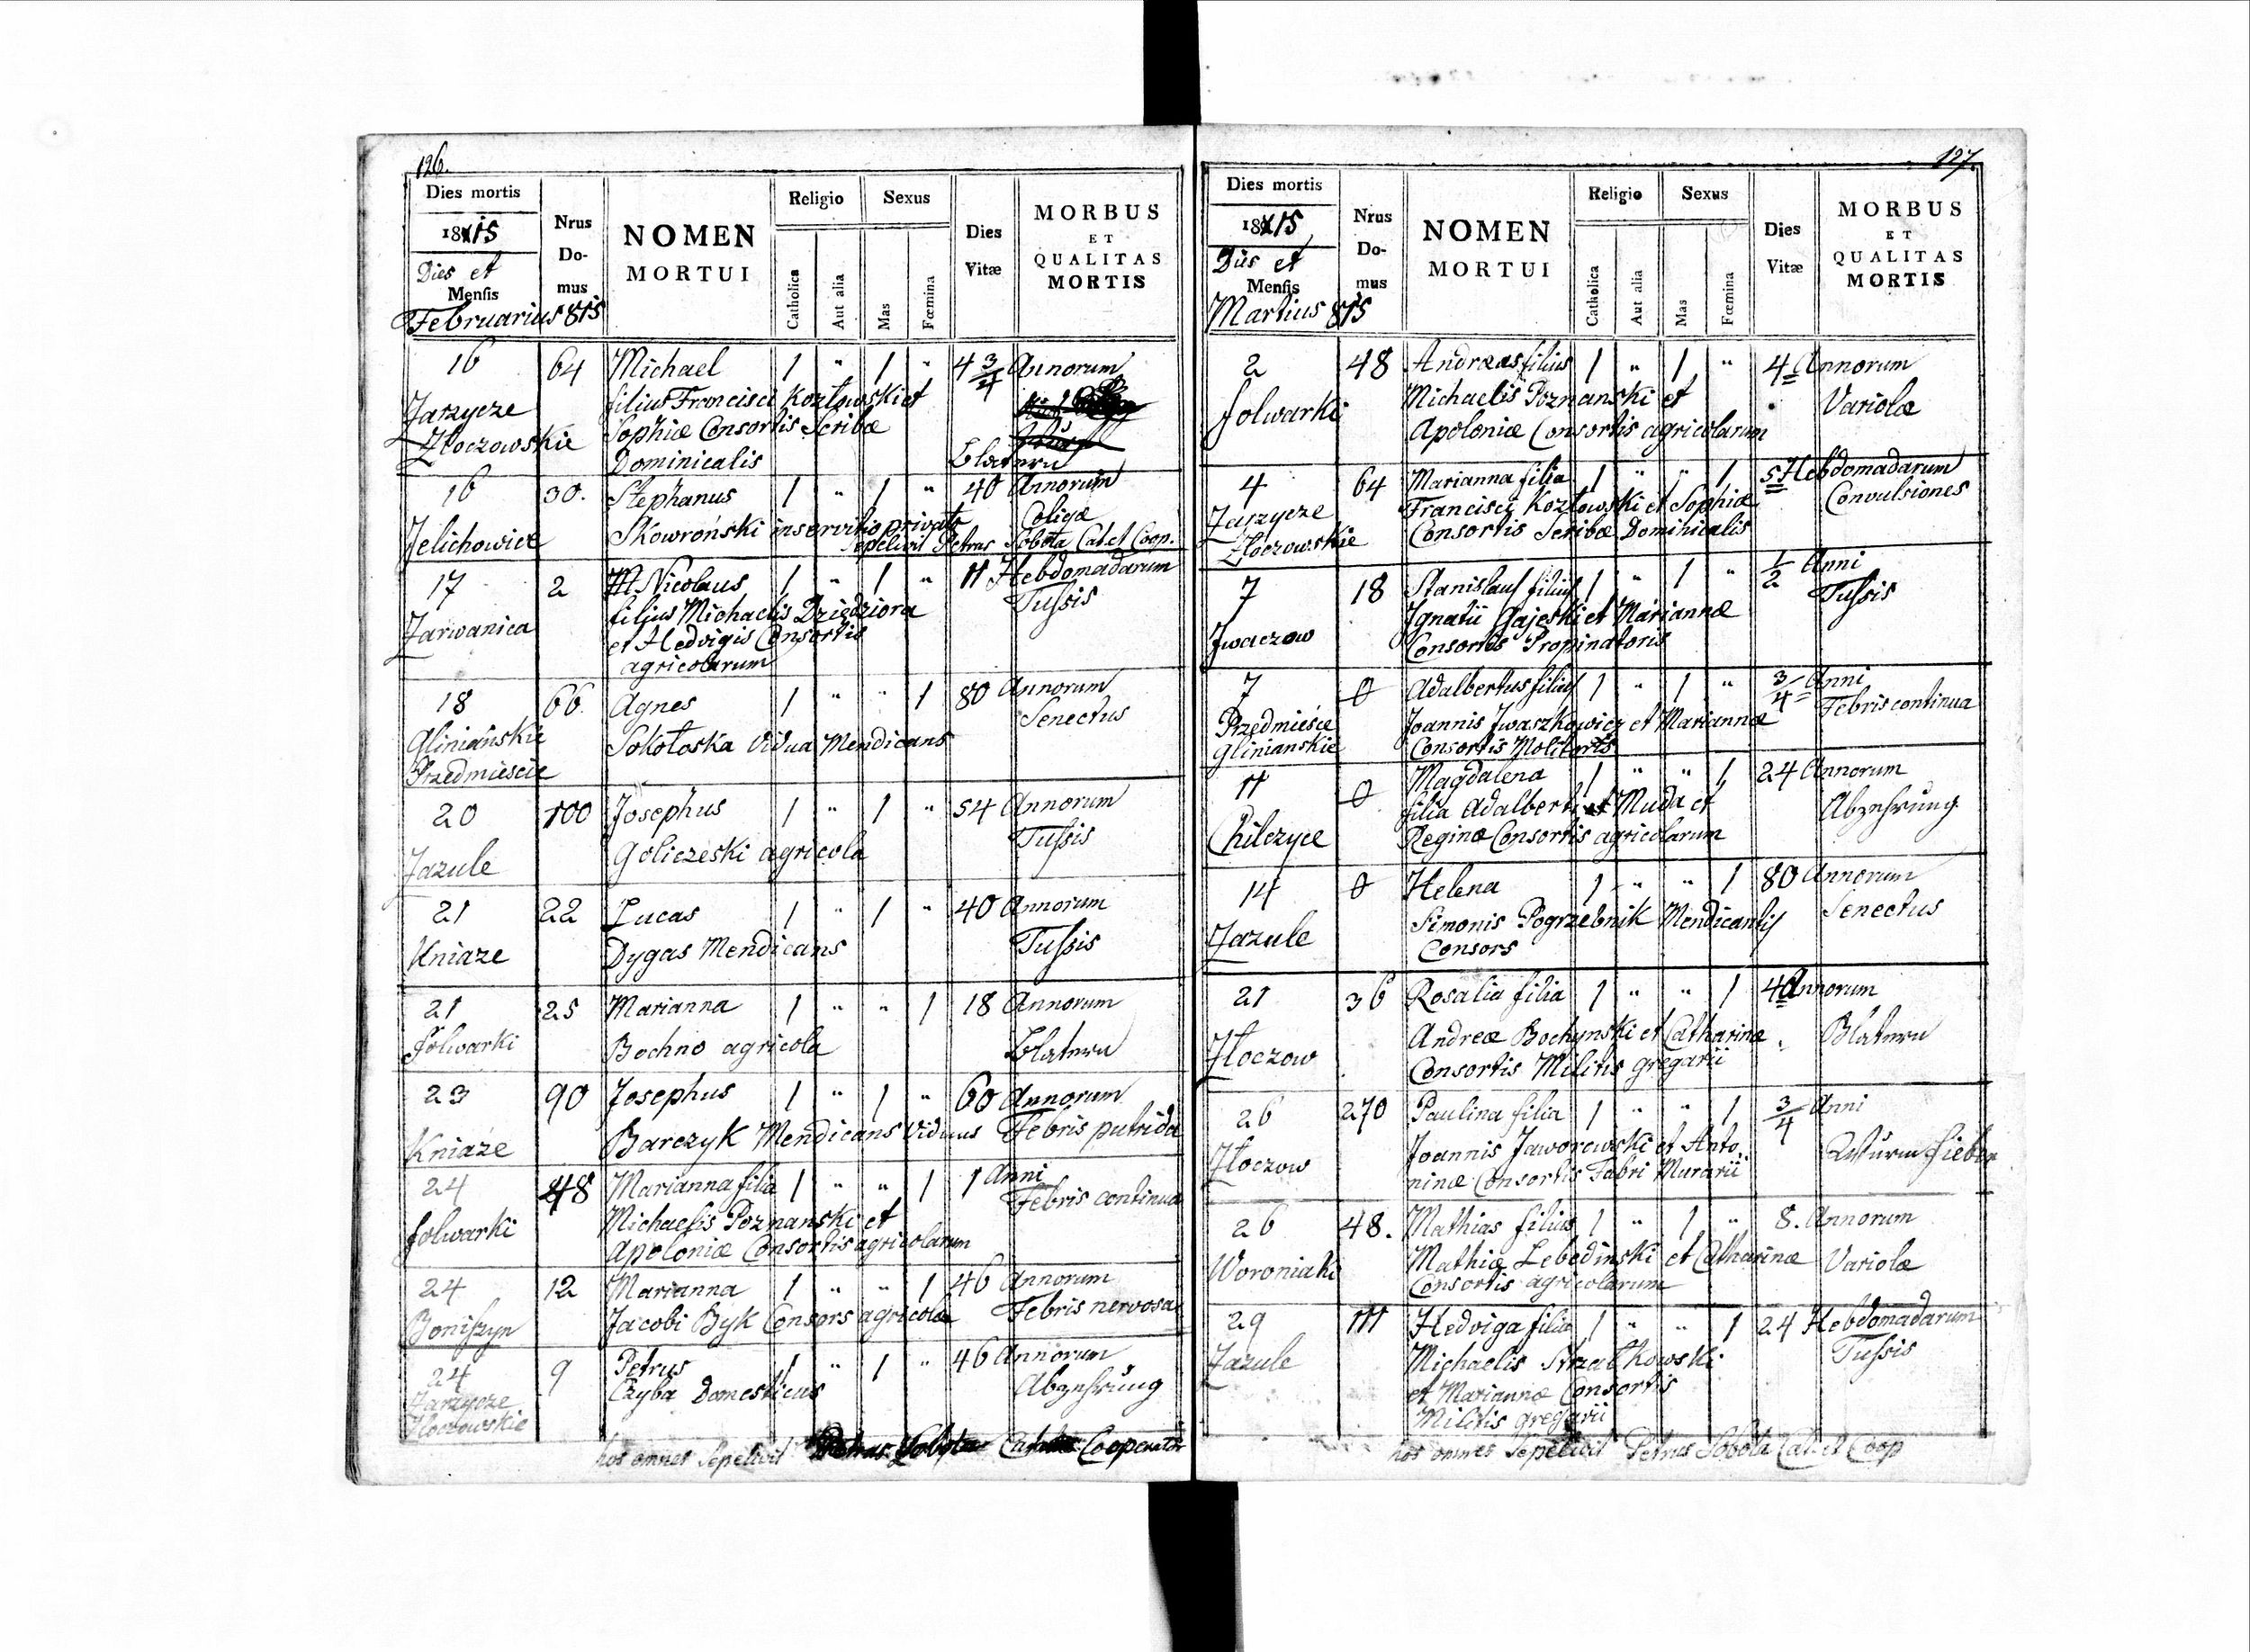 126.
Dies mortis
1815
Dies et
Mensis
Februarius 815
Nrus
Do-
mus
NOMEN
MORTUI
Religio
Catholica
Aut alia
Sexus
Mas
Fœmina
Dies
Vitæ
MORBUS
ET
QUALITAS
MORTIS
16 64 Michael 1 " 1 " 4 3/4 Annorum
Jarzycze filius Francisci Kozłowski et
Złoczowskie Sophiæ Consortis Scribæ
Dominicalis Blattern
16 30. Stephanus 1 " 1 " 40 Annorum
Jelichowice Skowroński in servitio privato Colicæ
Sepelivit Petrus Sobota Cat. et Coop.
17 2 Nicolaus 1 " 1 " 11 Hebdomadarum
Zarwanica filius Michaelis Dziedziora Tussis
et Hedvigis Consortis
agricolarum
18 66 Agnes 1 " " 1 80 Annorum
Gliniańskie Sokołoska Vidua Mendicans Senectus
Przedmieście
20 100 Josephus 1 " 1 " 54 Annorum
Zazule Goliczeski agricola Tussis
21 22 Lucas 1 " 1 " 40 Annorum
Kniaze Dygas Mendicans Tussis
21 25 Marianna 1 " " 1 18 Annorum
Folwarki Bochno agricola Blattern
23 90 Josephus 1 " 1 " 60 Annorum
Kniaże Barczyk Mendicans Viduus Febris putrida
24 48 Marianna filia 1 " " 1 1 Anni
Folwarki Michaelis Poznanski et Febris continua
Apoloniæ Consortis agricolarum
24 12 Marianna 1 " " 1 46 Annorum
Boniszyn Jacobi Byk Consors agricolæ Febris nervosa
24 9 Petrus 1 " 1 " 46 Annorum
Jarzycze Czyba Domesticus Abzehrung
Złoczowskie
hos omnes Sepelivit Petrus Sobota Cooperator
127.
Dies mortis
1815
Dies et
Mensis
Martius 815
Nrus
Do-
mus
NOMEN
MORTUI
Religio
Catholica
Aut alia
Sexus
Mas
Fœmina
Dies
Vitæ
MORBUS
ET
QUALITAS
MORTIS
2 48 Andreas filius 1 " 1 " 4 Annorum
Folwarki Michaelis Poznanski et Variolæ
Apoloniæ Consortis agricolarum
4 64 Marianna filia 1 " " 1 5 Hebdomadarum
Jarzycze Francisci Kozłowski et Sophiæ Convulsiones
Złoczowskie Consortis Scribæ Dominicalis
7 18 Stanislaus filius 1 " 1 " 1/2 Anni
Jwaczow Ignatii Gajeski et Mariannæ Tussis
Consortis Propinatoris
7 0 Adalbertus filius 1 " 1 " 3/4 Anni
Przedmieście Joannis Jwaszkowicz et Mariannæ Febris continua
Glinianskie Consortis Molitoris
11 0 Magdalena 1 " " 1 24 Annorum
Chilczyce filia Adalberti Muda et Abzehrung
Reginæ Consortis agricolarum
14 0 Helena 1 " " 1 80 Annorum
Zazule Simonis Pogrzebnik Mendicantis Senectus
Consors
21 36 Rosalia filia 1 " " 1 4 Annorum
Złoczow Andreæ Bochynski et Catharinæ Blattern
Consortis Militis gregarii
26 270 Paulina filia 1 " " 1 3/4 Anni
Złoczow Joannis Jaworowski et Anto- Wurm fieber
ninæ Consortis Fabri Murarii
26 48. Mathias filius 1 " 1 " 8. Annorum
Woroniaki Mathiæ Lebedinski et Catharinæ Variolæ
Consortis agricolarum
29 111 Hedviga filia 1 " " 1 24 Hebdomadarum
Zazule Michaelis Strzałkowski Tussis
et Mariannæ Consortis
Militis gregarii
hos omnes Sepelivit Petrus Sobota Cat. et Coop